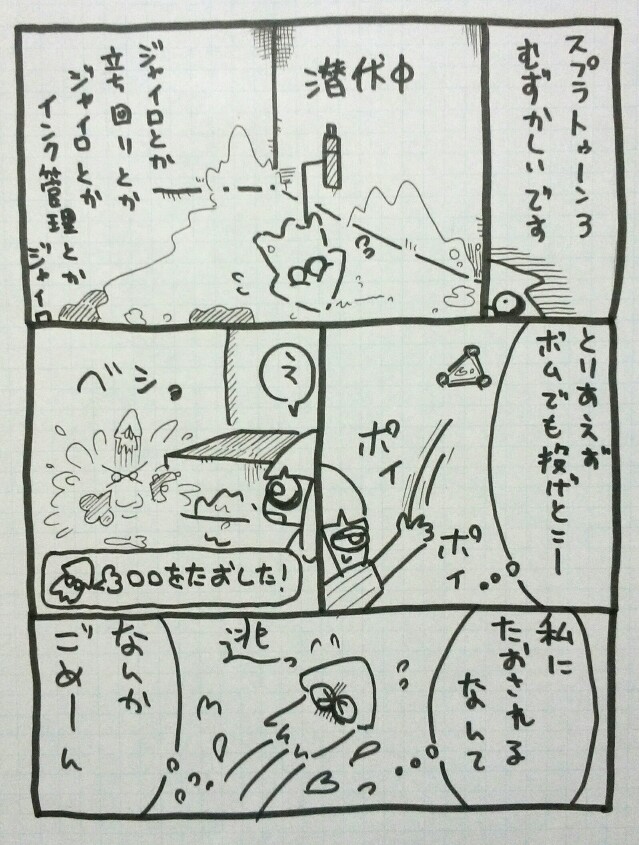 スプラトゥーン3
むずかしいです
潜伏中
ジャイロとか
立ち回りとか
ジャイロとか
インク管理とか
ジャイロ
とりあえず
ボムでも投げとこー
ポイ
ポイ
え
ベショ
〇〇をたおした!
私に
たおされる
なんて
逃
なんか
ごめーん